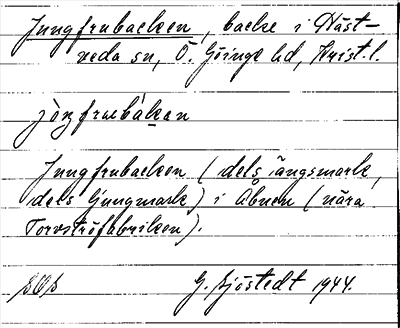 Jungfrubacken, backe i Häst-
veda sn, Ö. Göinge hd, Krist. l.
jòṉfrubákan
Jungfrubacken (dels ängsmark,
dels ljungmark) i Åbuen (nära
Torvströfabriken).
G. Sjöstedt 1944.